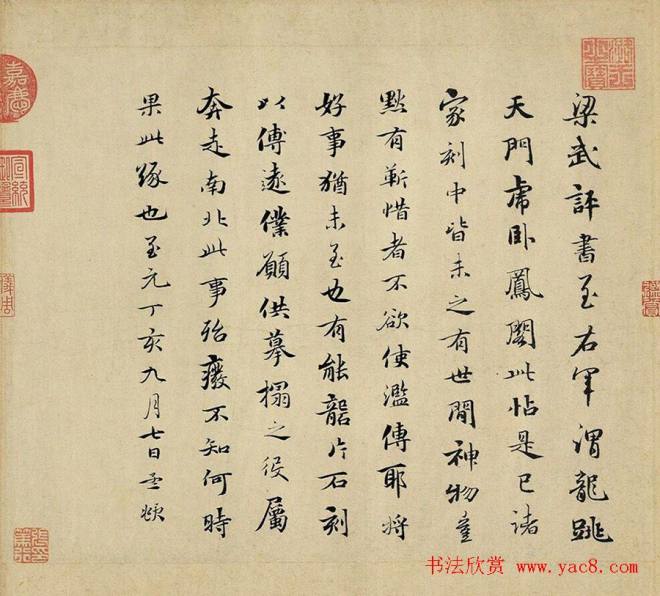 梁武評書至右軍謂龍跳
天門虎卧鳳閣此帖是已諸
家刻中皆未之有世間神物豈
黙有靳惜者不欲使濫傳耶將
好事猶未至也有能龍片石刻
以傳遠僕願供摹搨之役屬
奔走南北此事殆癈不知何時
果此緣也至元丁亥九月七日孟頫
嘉慶
宣統
书法欣赏 www.yac8.com